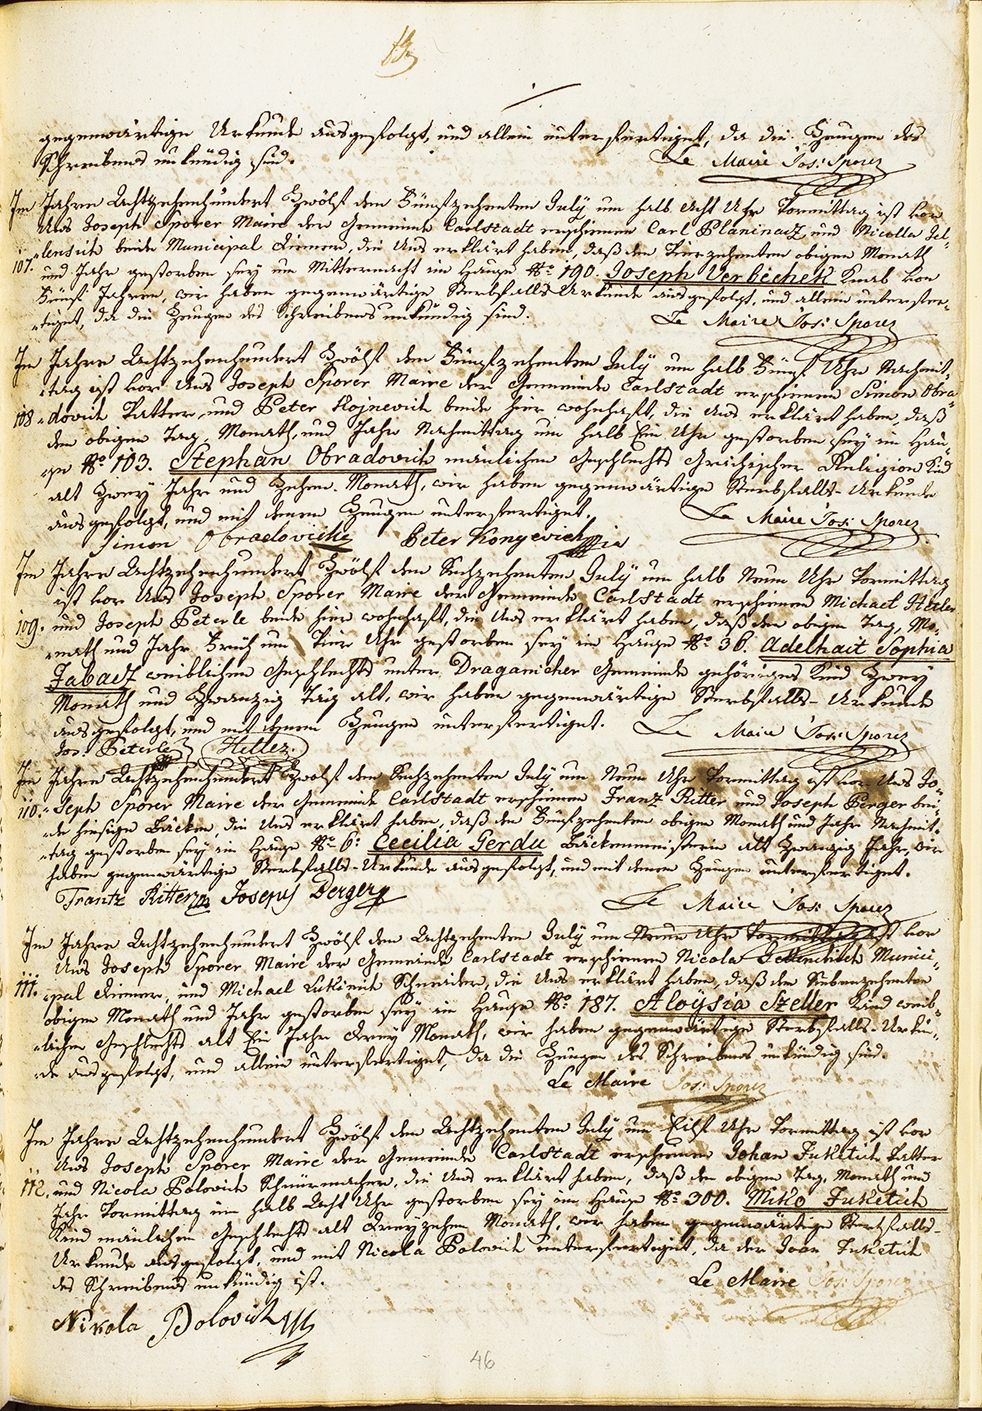 gegenwärtige Urkunde ausgefolgt, und allein unterfertiget, da die Zeugen des
Schreibens unkündig sind.
Le Maire Jos: Sporer
Im Jahre Achtzehenhundert Zwölf den Fünfzehenten July um halb Acht Uhr Vormittag ist vor
Uns Joseph Sporer Maire der Gemeinde Carlstadt erschienen Carl Planinacz und Nicolla Jel-
107. -lensich beide Municipal Diener, die Uns erklärt haben, daß den Vierzehenten obigen Monath
und Jahr gestorben sey um Mitternacht im Hause No. 190. Joseph Verbichek Knab von
Fünf Jahren, wir haben gegenwärtige Sterbfalls-Urkunde ausgefolgt, und allein unterfer-
-tiget, da die Zeugen des Schreibens unkündig sind.
Le Maire Jos: Sporer
Im Jahre Achtzehenhundert Zwölf den Fünfzehenten July um halb Fünf Uhr Nachmit-
-tag ist vor Uns Joseph Sporer Maire der Gemeinde Carlstadt erschienen Simon Obra-
108. -dovich Vatter, und Peter Kojnevich beide hier wohnhaft, die Uns erklärt haben, daß
den obigen Tag, Monath, und Jahr Nachmittag um halb Ein Uhr gestorben sey im Hau-
-se No. 103. Stephan Obradovich mänlichen Geschlechts Grichischer Religion Kind
alt Zwey Jahr und Zehen Monath, wir haben gegenwärtige Sterbfalls-Urkunde
ausgefolgt, und mit denen Zeugen unterfertiget.
Le Maire Jos: Sporer
Simon Obradovich Peter Konyevich
Im Jahre Achtzehenhundert Zwölf den Sechzehenten July um halb Neun Uhr Vormittag
ist vor Uns Joseph Sporer Maire der Gemeinde Carlstadt erschienen Michael
109. und Joseph Peterle beide hier wohnhaft, die Uns erklärt haben, daß den obigen Tag, Mo-
-nath und Jahr Früh um Vier Uhr gestorben sey im Hause No. 36. Adelhait Sophia
Jabacz weiblichen Geschlechts unter Draganicher Gemeinde gehöriges Kind Zwey
Monath und Zwanzig Täg alt, wir haben gegenwärtige Sterbfalls-Urkunde
ausgefolgt, und mit denen Zeugen unterfertiget.
Le Maire Jos: Sporer
Jos: Peterle
Im Jahre Achtzehenhundert Zwölf den Sechzehenten July um Neun Uhr Vormittag ist vor Uns Jo-
110. -seph Sporer Maire der Gemeinde Carlstadt erschienen Franz Ritter und Joseph Berger bei-
-de hiesige Bäcken, die Uns erklärt haben, daß den Fünfzehenten obigen Monath und Jahr Nachmit-
-tag gestorben sey im Hause No. 6. Cecilia Gerdu Bäckenmeisterin alt Zwanzig Jahr, wir
haben gegenwärtige Sterbfalls-Urkunde ausgefolgt, und mit denen Zeugen unterfertiget.
Frantz Ritter Josephs Berger
Le Maire Jos: Sporer
Im Jahre Achtzehenhundert Zwölf den Achtzehenten July um Neun Uhr Vormittag ist vor
Uns Joseph Sporer Maire der Gemeinde Carlstadt erschienen Nicola Jellensich Munici-
111. -pal Diener, und Michael Lukinich Schneider, die Uns erklärt haben, daß den Siebenzehenten
obigen Monath und Jahr gestorben sey im Hause No. 187. Aloÿsia Szeller Kind weib-
-lichen Geschlechts alt Ein Jahr Drey Monath, wir haben gegenwärtige Sterbfalls-Urkun-
-de ausgefolgt, und allein unterfertiget, da die Zeugen des Schreibens unkündig sind.
Le Maire Jos: Sporer
Im Jahre Achtzehenhundert Zwölf den Achtzehenten July um Eilf Uhr Vormittag ist vor
Uns Joseph Sporer Maire der Gemeinde Carlstadt erschienen Johan Fuketich Vatter
112. und Nicola Polovich Schnürmacher, die Uns erklärt haben, daß den obigen Tag, Monath und
Jahr Vormittag um halb Acht Uhr gestorben sey im Hause No. 300. Miko Fuketich
Kind mänlichen Geschlechts alt Dreyzehen Monath, wir haben gegenwärtige Sterbfalls-
Urkunde ausgefolgt, und mit Nicola Polovich unterfertiget, da der Joan Fuketich
des Schreibens unkündig ist.
Le Maire Jos: Sporer
Nikola Polovich
46